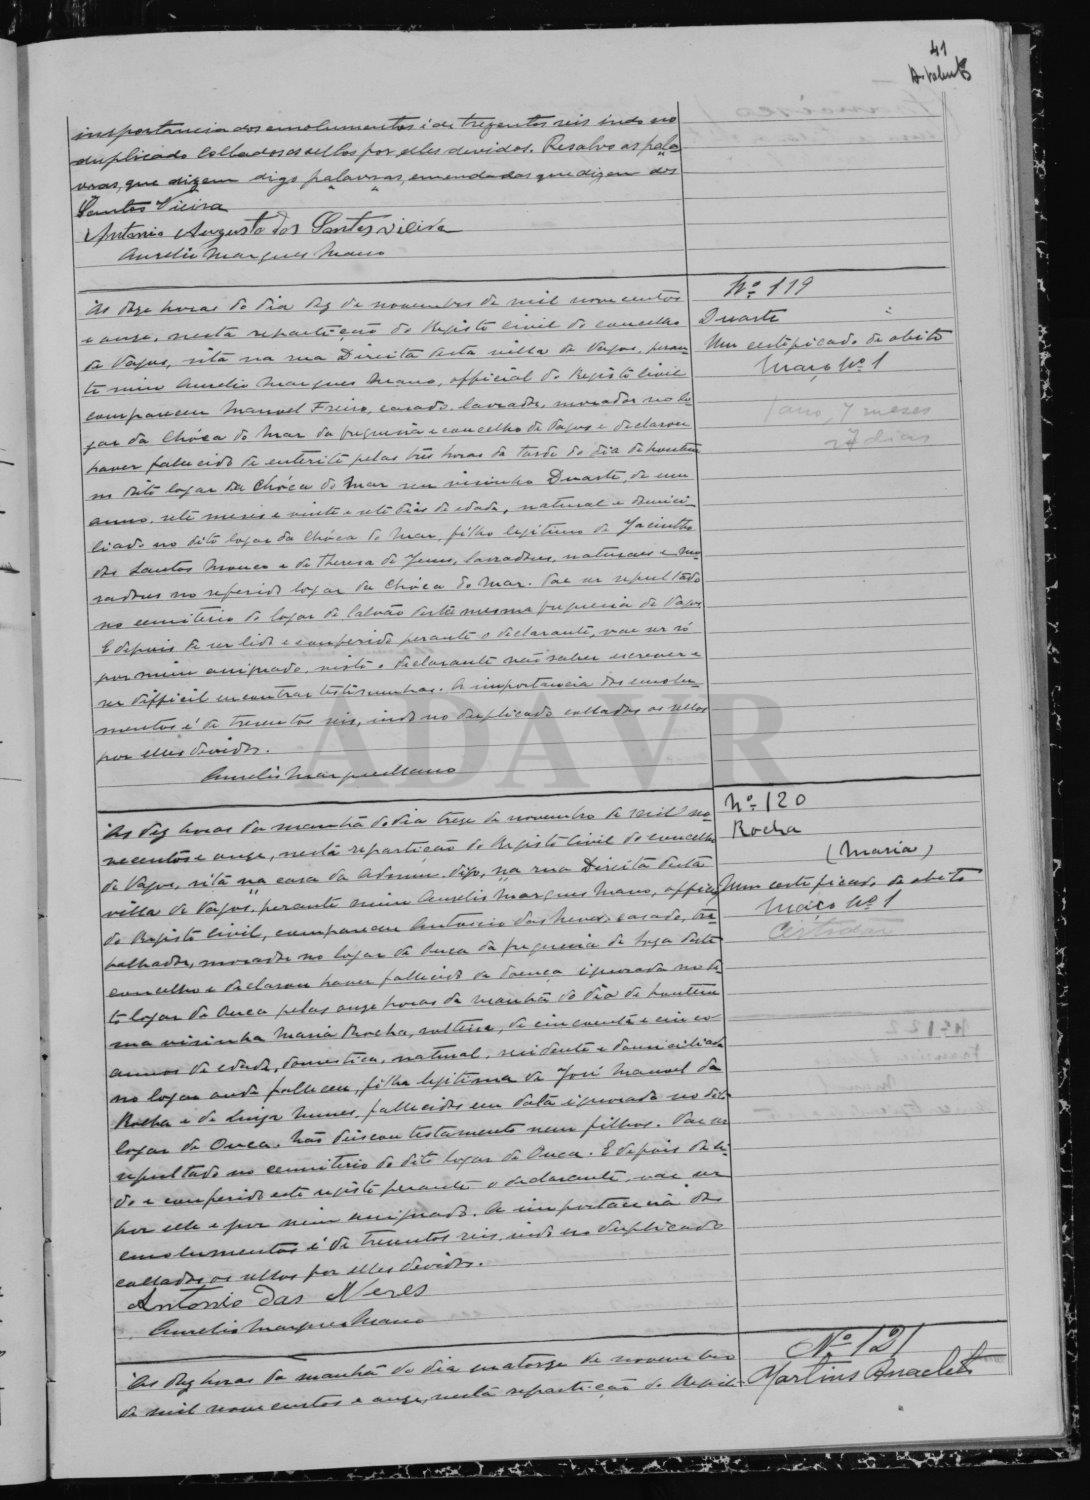 41
importancia dos emolumentos é de trezentos reis indo no
duplicado collados os sellos por elles devidos. Resalvo as pala-
vras, que dizem digo palavras, emendadas que dizem dos
Santos Vieira
Antonio Augusto dos Santos Vieira
Aurelio Marques Mano
Nº 119
Duarte
Um certificado de obito
Maço Nº 1
1 ano, 7 meses
27 dias
Ás doze horas do dia dez de novembro de mil novecentos
e onze, nesta repartição do Registo Civil do concelho
de Vagos, sita na rua Direita desta villa de Vagos, peran-
te mim Aurelio Marques Mano, official do Registo Civil
compareceu Manoel Freire, casado, lavrador, morador no lo-
gar da Chóca do Mar da freguesia e concelho de Vagos e declarou
haver fallecido de enterite pelas três horas da tarde do dia de hontem
no dito logar da Chóca do Mar seu visinho Duarte, de um
anno, sete meses e vinte e sete dias de edade, natural e domici-
liado no dito logar da Chóca do Mar, filho legitimo de Jacintho
dos Santos Mouco e de Theresa de Jesus, lavradores, naturaes e mo-
radores no referido logar da Chóca do Mar. Vae ser sepultado
no cemiterio do logar de Calvão desta mesma freguesia de Vagos
E depois de ser lido e conferido perante o declarante, vae ser só
por mim assignado, visto o declarante não saber escrever e
ser difficil encontrar testimunhas. A importancia dos emolu-
mentos é de trezentos reis, indo no duplicado collados os sellos
por elles devidos.
Aurelio Marques Mano
ADAVR
Nº 120
Rocha
(Maria)
Um certificado de obito
Maço Nº 1
Ás dez horas da manhã do dia treze de novembro de mil no-
vecentos e onze, nesta repartição do Registo Civil do concelho
de Vagos, sita na casa da Admin. digo, na rua Direita desta
villa de Vagos, perante mim Aurelio Marques Mano, official
do Registo Civil, compareceu Antonio das Neves, casado, tra-
balhador, morador no logar de Ouca da freguesia de Soza deste
concelho e declarou haver fallecido de doença ignorada no di-
to logar de Ouca pelas onze horas da manhã do dia de hontem
sua visinha Maria Rocha, solteira, de cincoenta e cinco
annos de edade, domestica, natural, residente e domiciliada
no logar onde falleceu, filha legitima de José Manoel da
Rocha e de Luiza Nunes, fallecidos em data ignorada no dito
logar de Ouca. Não deixou testamento nem filhos. Vae ser
sepultado no cemiterio do dito logar de Ouca. E depois de li-
do e conferido este registo perante o declarante, vae ser
por elle e por mim assignado. A importancia dos
emolumentos é de trezentos reis, indo no duplicado
collados os sellos por elles devidos.
Antonio das Neves
Aurelio Marques Mano
Nº 121
Martins Anacleto
Ás dez horas da manhã do dia quatorze de novembro
de mil novecentos e onze, nesta repartição do Regis-